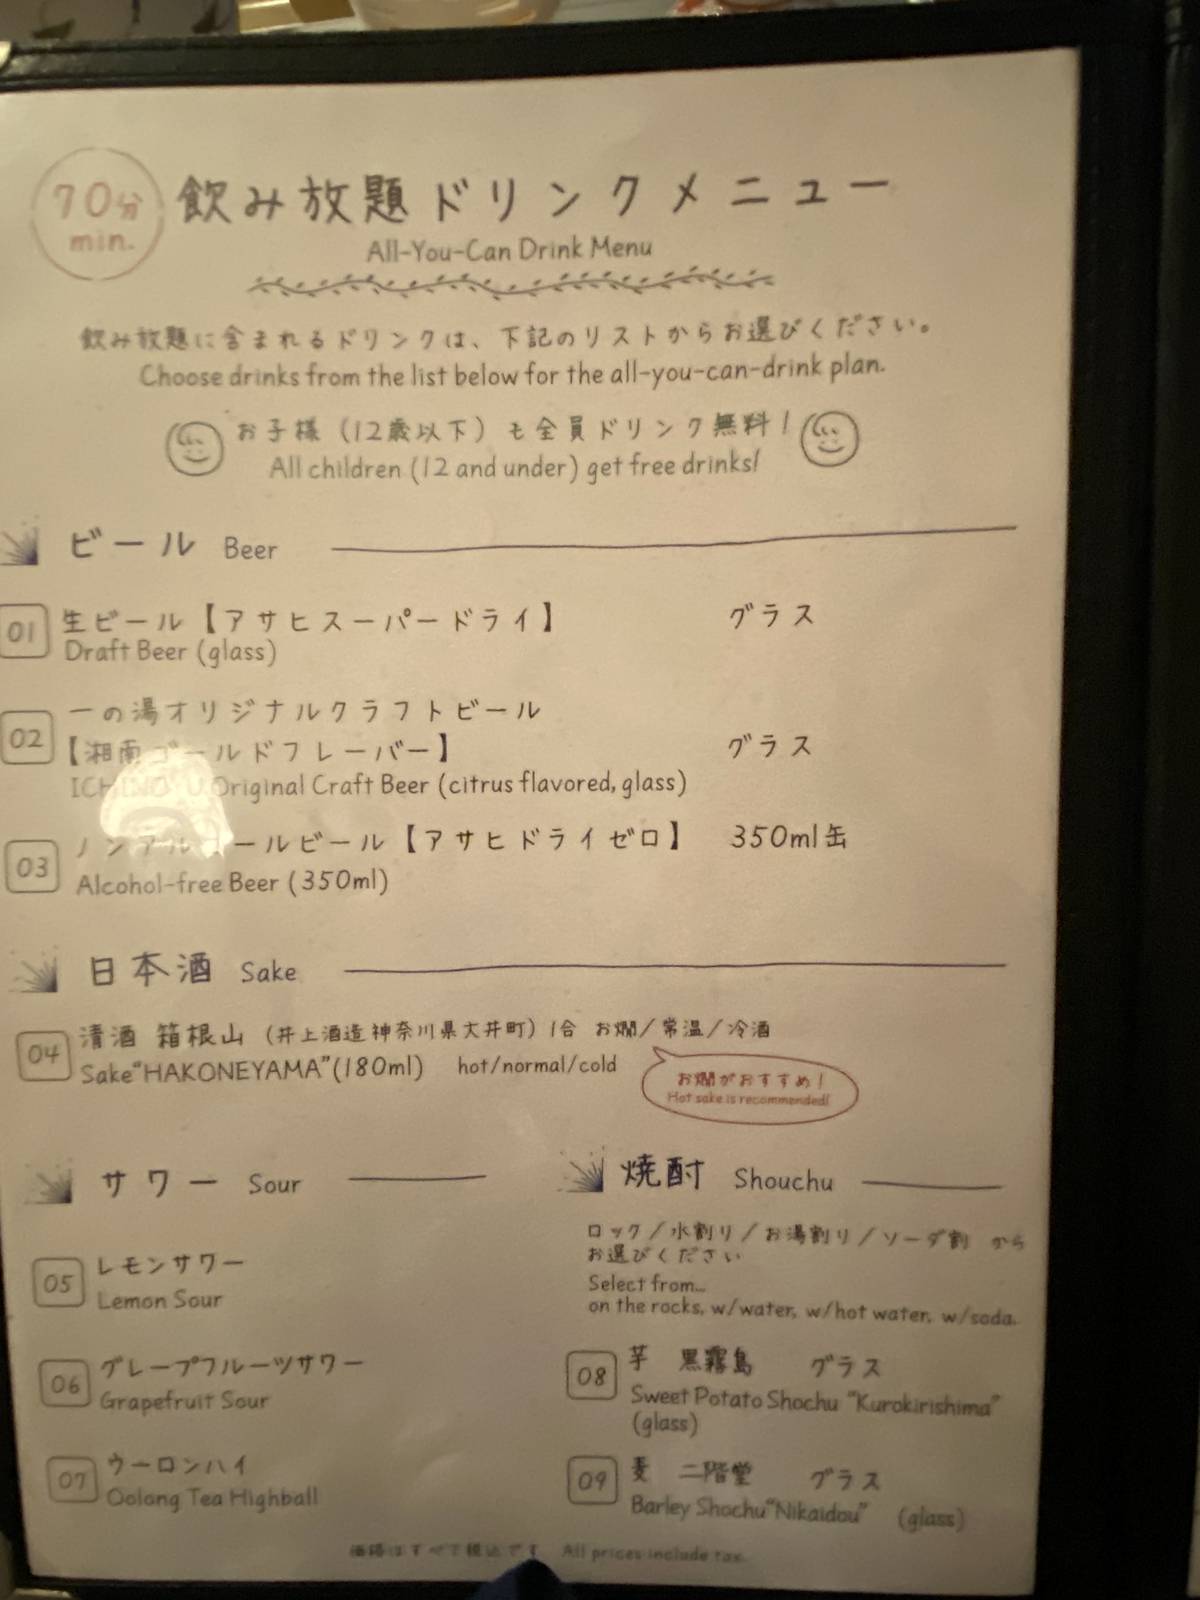 70分
min.
飲み放題ドリンクメニュー
All-You-Can Drink Menu
飲み放題に含まれるドリンクは、下記のリストからお選びください。
Choose drinks from the list below for the all-you-can-drink plan.
お子様（12歳以下）も全員ドリンク無料！
All children (12 and under) get free drinks!
ビール Beer
01 生ビール【アサヒスーパードライ】 グラス
Draft Beer (glass)
02 一の湯オリジナルクラフトビール
【湘南ゴールドフレーバー】 グラス
Original Craft Beer (citrus flavored, glass)
03 ノンアルコールビール【アサヒドライゼロ】 350ml缶
Alcohol-free Beer (350ml)
日本酒 Sake
04 清酒 箱根山 （井上酒造 神奈川県大井町）1合 お燗/常温/冷酒
Sake"HAKONEYAMA"(180ml) hot/normal/cold
お燗がおすすめ！
Hot sake is recommended!
サワー Sour
05 レモンサワー
Lemon Sour
06 グレープフルーツサワー
Grapefruit Sour
07 ウーロンハイ
Oolong Tea Highball
焼酎 Shouchu
ロック/水割り/お湯割り/ソーダ割 から
お選びください
Select from...
on the rocks, w/water, w/hot water, w/soda.
08 芋 黒霧島 グラス
Sweet Potato Shochu "Kurokirishima"
(glass)
09 麦 二階堂 グラス
Barley Shochu"Nikaidou" (glass)
価格はすべて税込です All prices include tax.